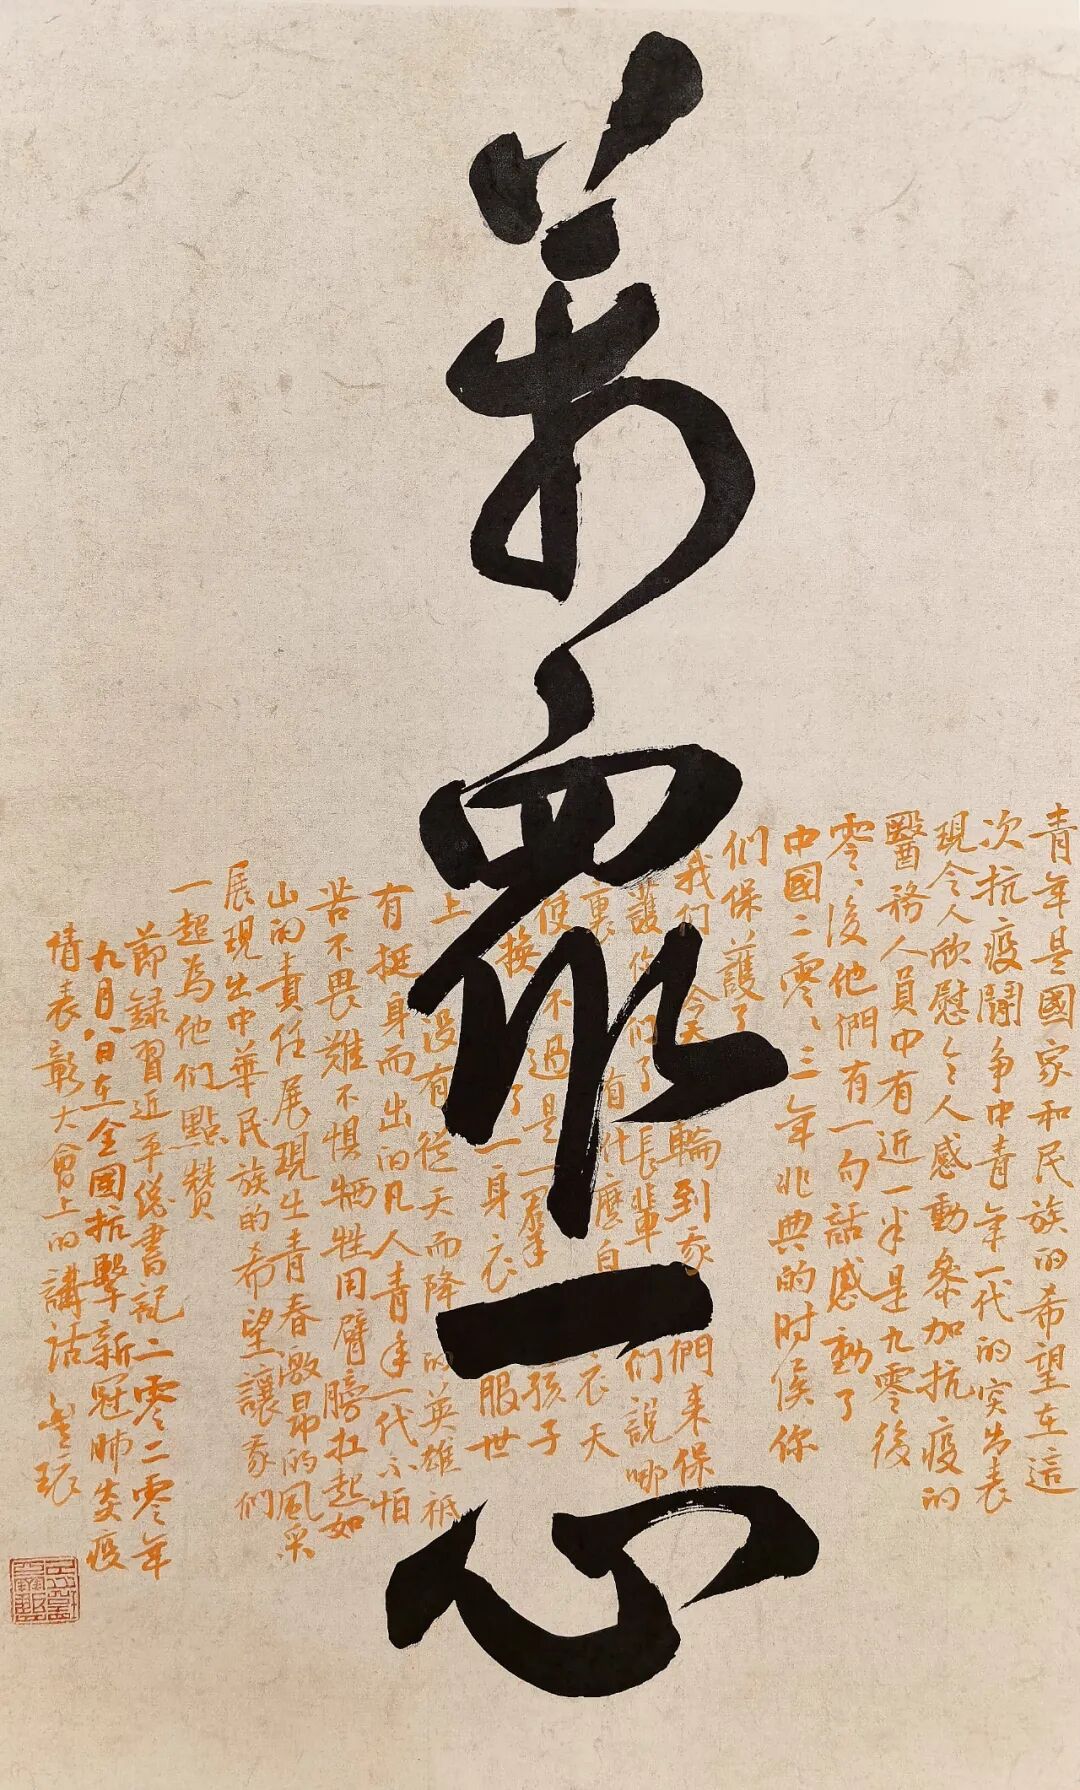 萬眾一心
青年是國家和民族的希望在這
次抗疫鬪争中青年一代的突出表
現令人欣慰令人感動參加抗疫的
醫務人員中有近一半是九零後
零零後他們有一句話感動了
中國二零零三年非典的时候你
们保護了
我们今天輪到我們来保
護你们了長輩们說哪
裏有什麼白衣天
使不過是一羣孩子
換了一身衣服世
上没有從天而降的英雄衹
有挺身而出的凡人青年一代不怕
苦不畏難不惧牺牲用臂膀扛起如
山的責任展現出青春激昂的風采
展現出中華民族的希望讓我們
一起為他们點赞
節録習近平總書記二零二零年
九月八日在全國抗擊新冠肺炎疫
情表彰大會上的講話